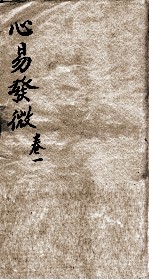 心易發微
卷一